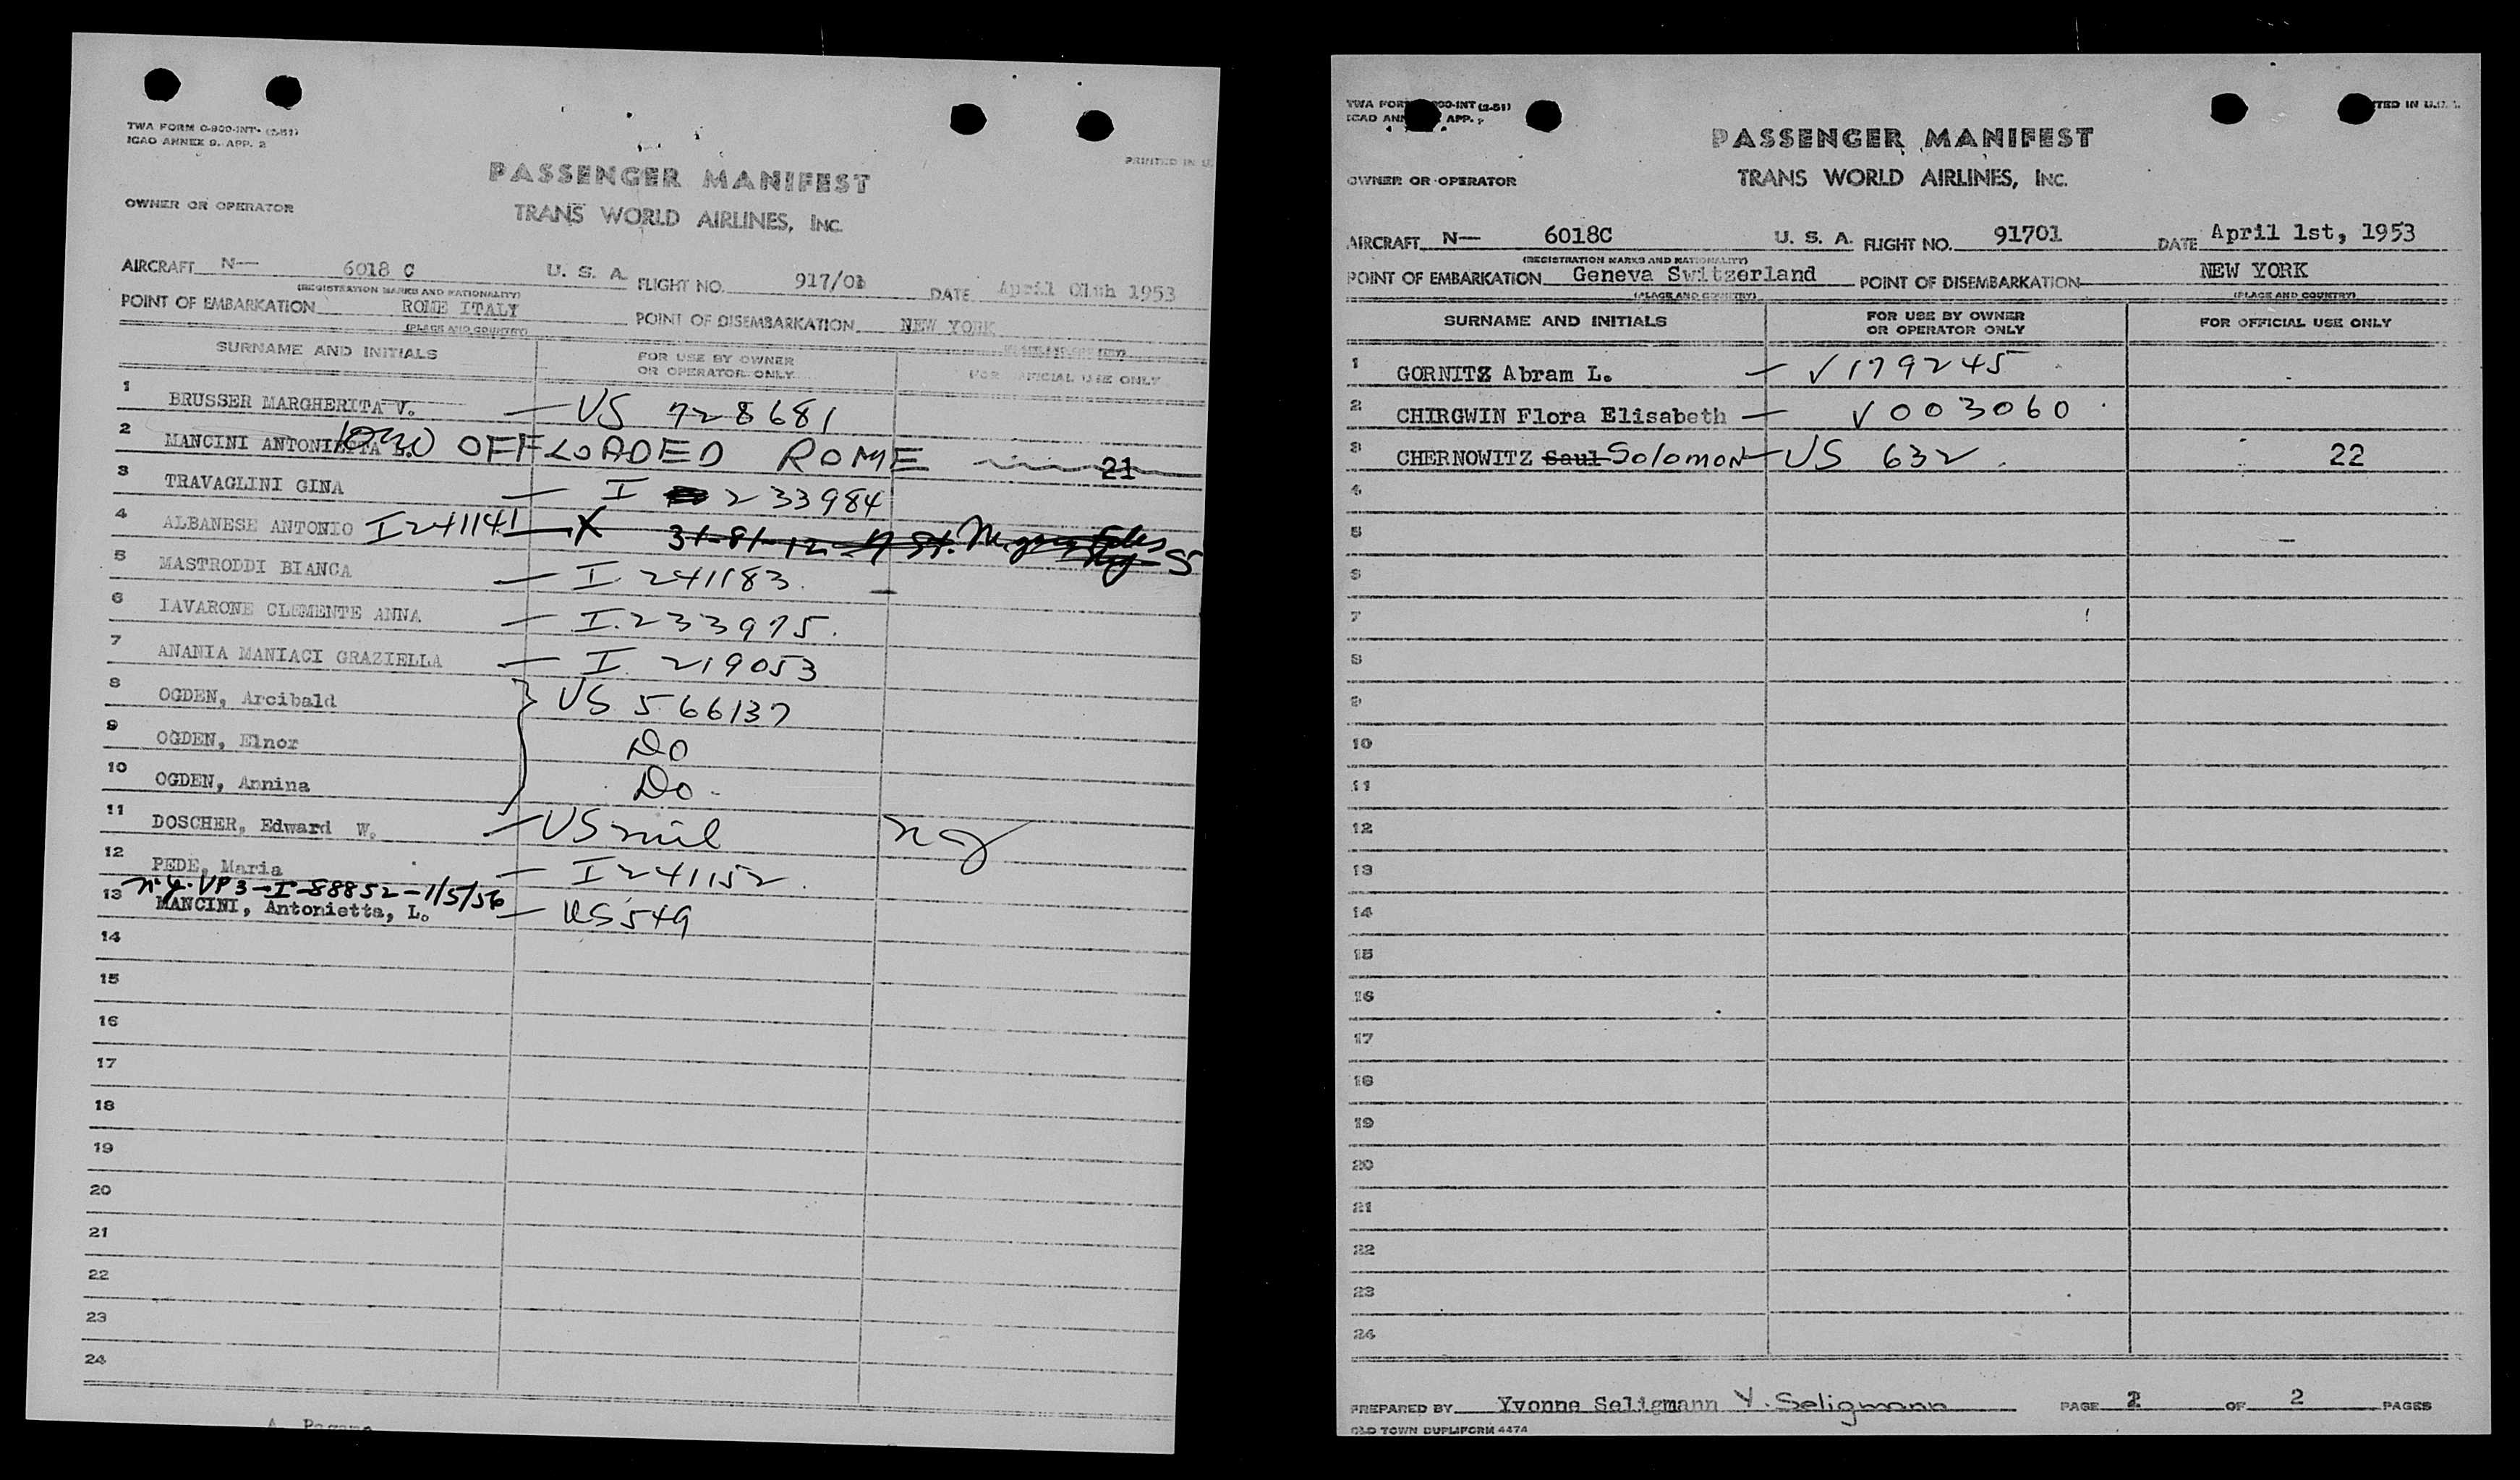 TWA FORM O-800-INT- (2-51)
ICAO ANNEX 9. APP. 2
PRINTED IN U.
PASSENGER MANIFEST
OWNER OR OPERATOR
TRANS WORLD AIRLINES, INC.
AIRCRAFT N— 6018 C U. S. A. FLIGHT NO. 917/01 DATE April 01th 1953
(REGISTRATION MARKS AND NATIONALITY)
POINT OF EMBARKATION ROME ITALY POINT OF DISEMBARKATION NEW YORK
(PLACE AND COUNTRY)
SURNAME AND INITIALS FOR USE BY OWNER OR OPERATOR ONLY FOR OFFICIAL USE ONLY
1 BRUSSER MARGHERITA V. — US 728681
2 MANCINI ANTONIETTA L. OFFLOADED ROME 21
3 TRAVAGLINI GINA — I 233984
4 ALBANESE ANTONIO I241141 — X
5 MASTRODDI BIANCA — I 241183.
6 IAVARONE CLEMENTE ANNA — I.233975.
7 ANANIA MANIACI GRAZIELLA — I. 219053
8 OGDEN, Arcibald } US 566137
9 OGDEN, Elnor Do
10 OGDEN, Annina Do.
11 DOSCHER, Edward W. — US mil
12 PEDE, Maria — I 241152.
n.y. VP3-I-88852-1/5/56
13 MANCINI, Antonietta, L. — US 549
14
15
16
17
18
19
20
21
22
23
24
TWA FORM 800-INT (2-51)
ICAO ANN APP.
PRINTED IN U.S.
PASSENGER MANIFEST
OWNER OR OPERATOR
TRANS WORLD AIRLINES, INC.
AIRCRAFT N— 6018C U. S. A. FLIGHT NO. 91701 DATE April 1st, 1953
(REGISTRATION MARKS AND NATIONALITY)
POINT OF EMBARKATION Geneva Switzerland POINT OF DISEMBARKATION NEW YORK
(PLACE AND COUNTRY) (PLACE AND COUNTRY)
SURNAME AND INITIALS FOR USE BY OWNER OR OPERATOR ONLY FOR OFFICIAL USE ONLY
1 GORNITZ Abram L. — V179245
2 CHIRGWIN Flora Elisabeth — V003060
3 CHERNOWITZ Saul Solomon — US 632. 22
4
5
6
7
8
9
10
11
12
13
14
15
16
17
18
19
20
21
22
23
24
PREPARED BY Yvonne Seligmann Y. Seligmann PAGE 2 OF 2 PAGES
OLD TOWN DUPLIFORM 4474